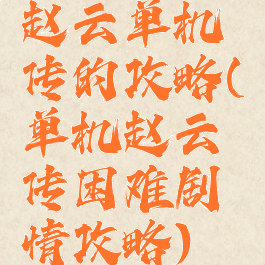 赵云单机
传的攻略(
单机赵云
传困难剧
情攻略)